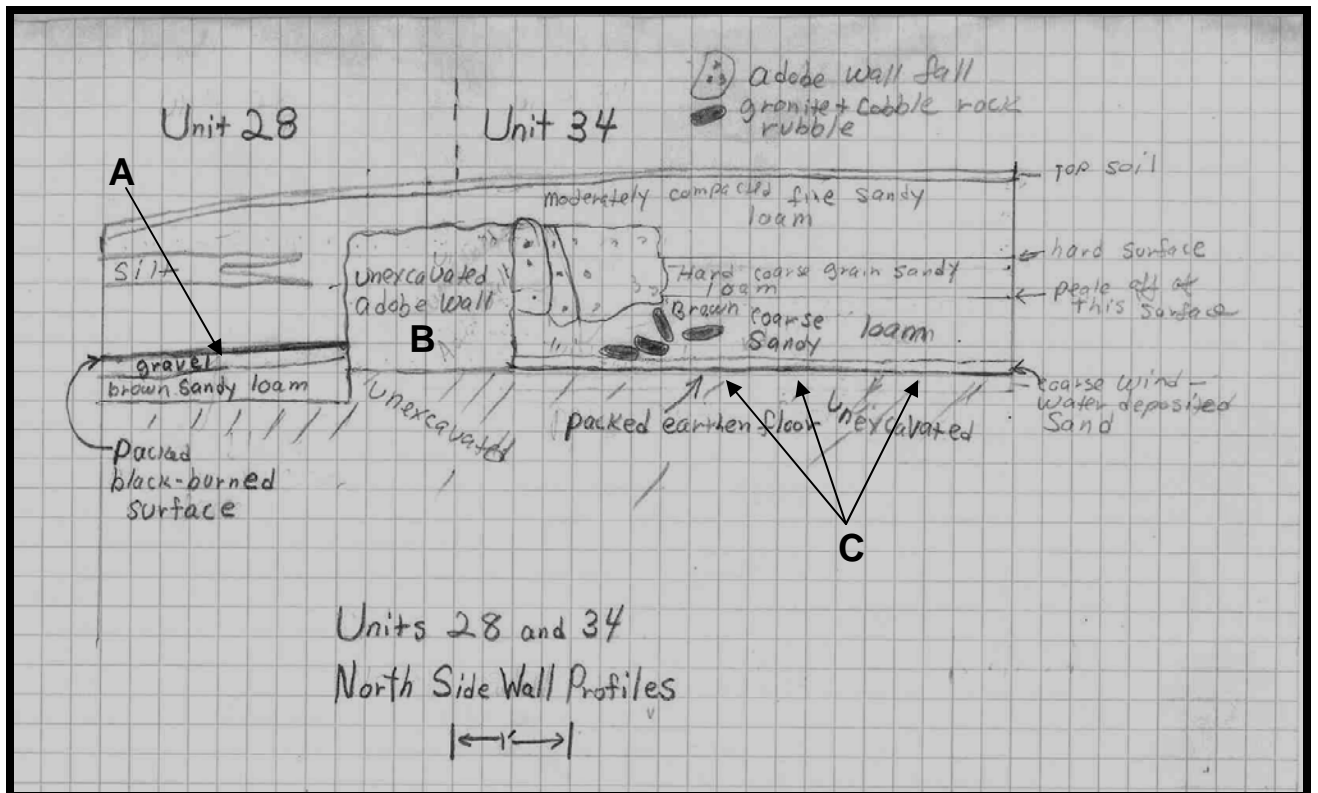 adobe wall fall
granite + cobble rock
rubble
Unit 28
Unit 34
A
TOP SOIL
moderately compacted fine sandy
loam
hard surface
silt
unexcavated
adobe wall
Hard coarse grain sandy
loam
peale off of
this surface
Brown coarse
Sandy
loam
B
gravel
brown sandy loam
coarse wind-
water deposited
Sand
unexcavated
packed earthen floor
unexcavated
Packed
black-burned
surface
C
Units 28 and 34
North Side Wall Profiles
1'